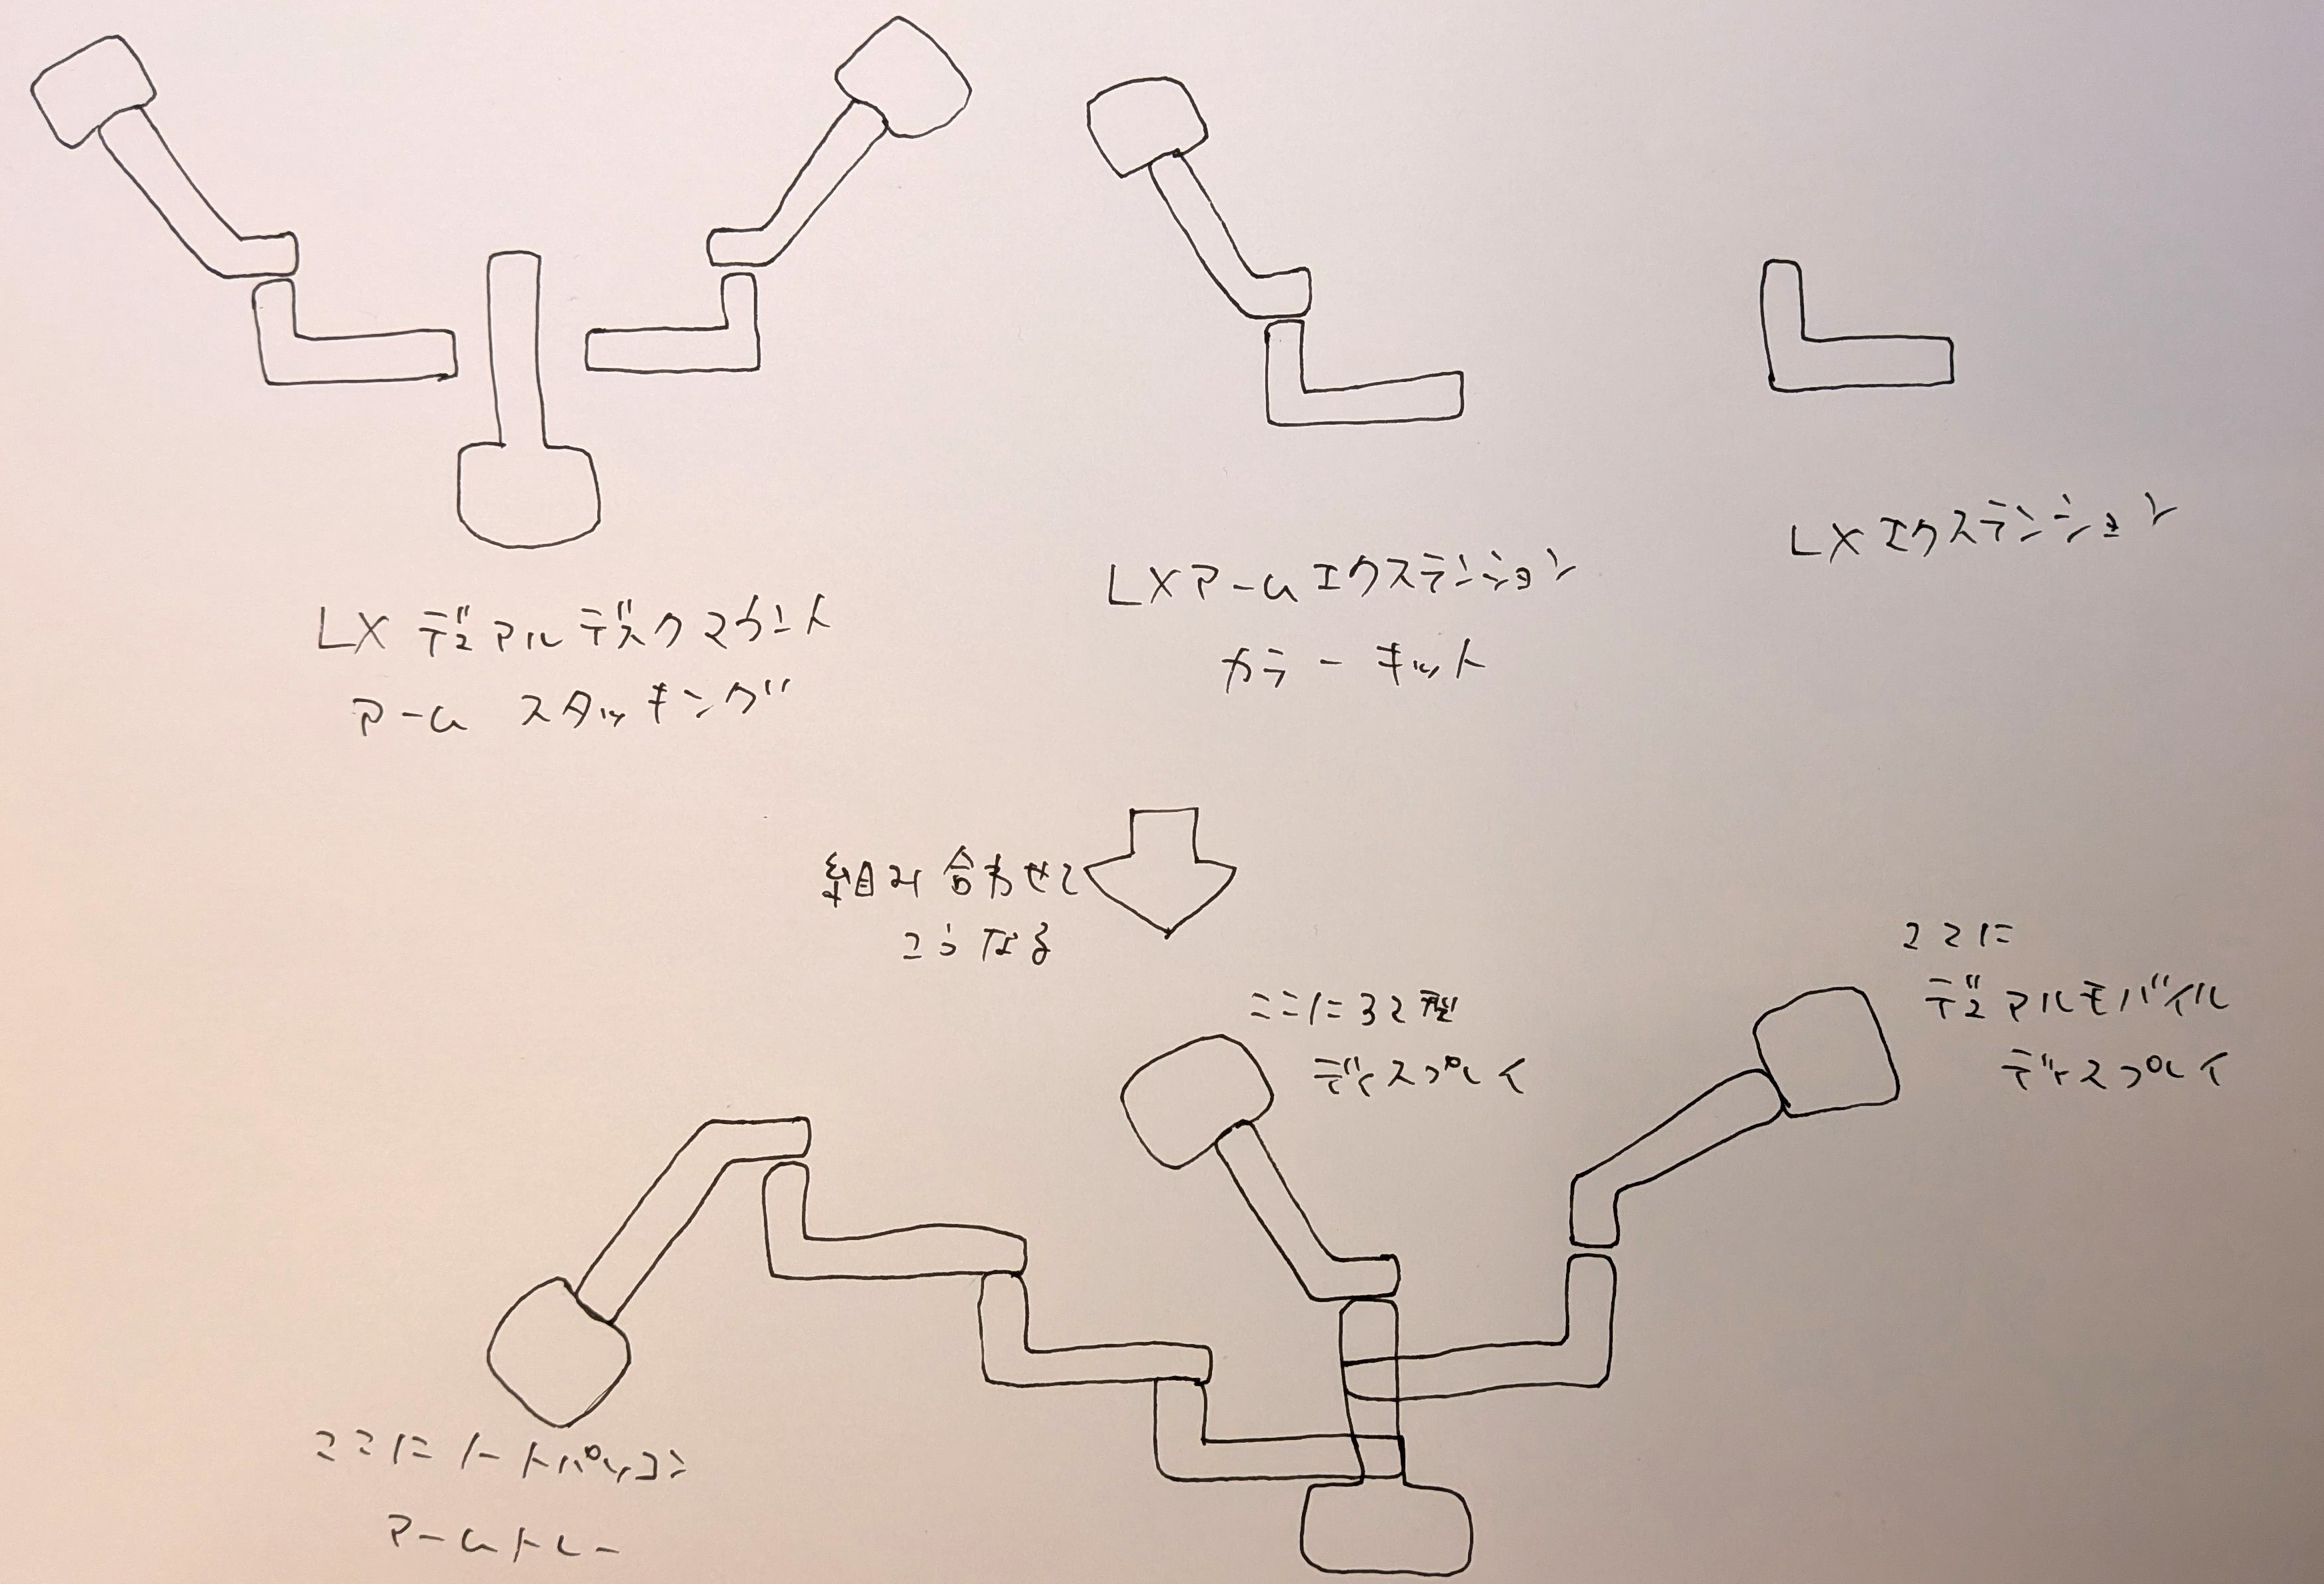 LX デュアル デスクマウント
アーム スタッキング
LXアーム エクステンション
カラーキット
LX エクステンション
組み合わせて
こうなる
ここに32型
ディスプレイ
ここに
デュアルモバイル
ディスプレイ
ここにノートパソコン
アームトレー